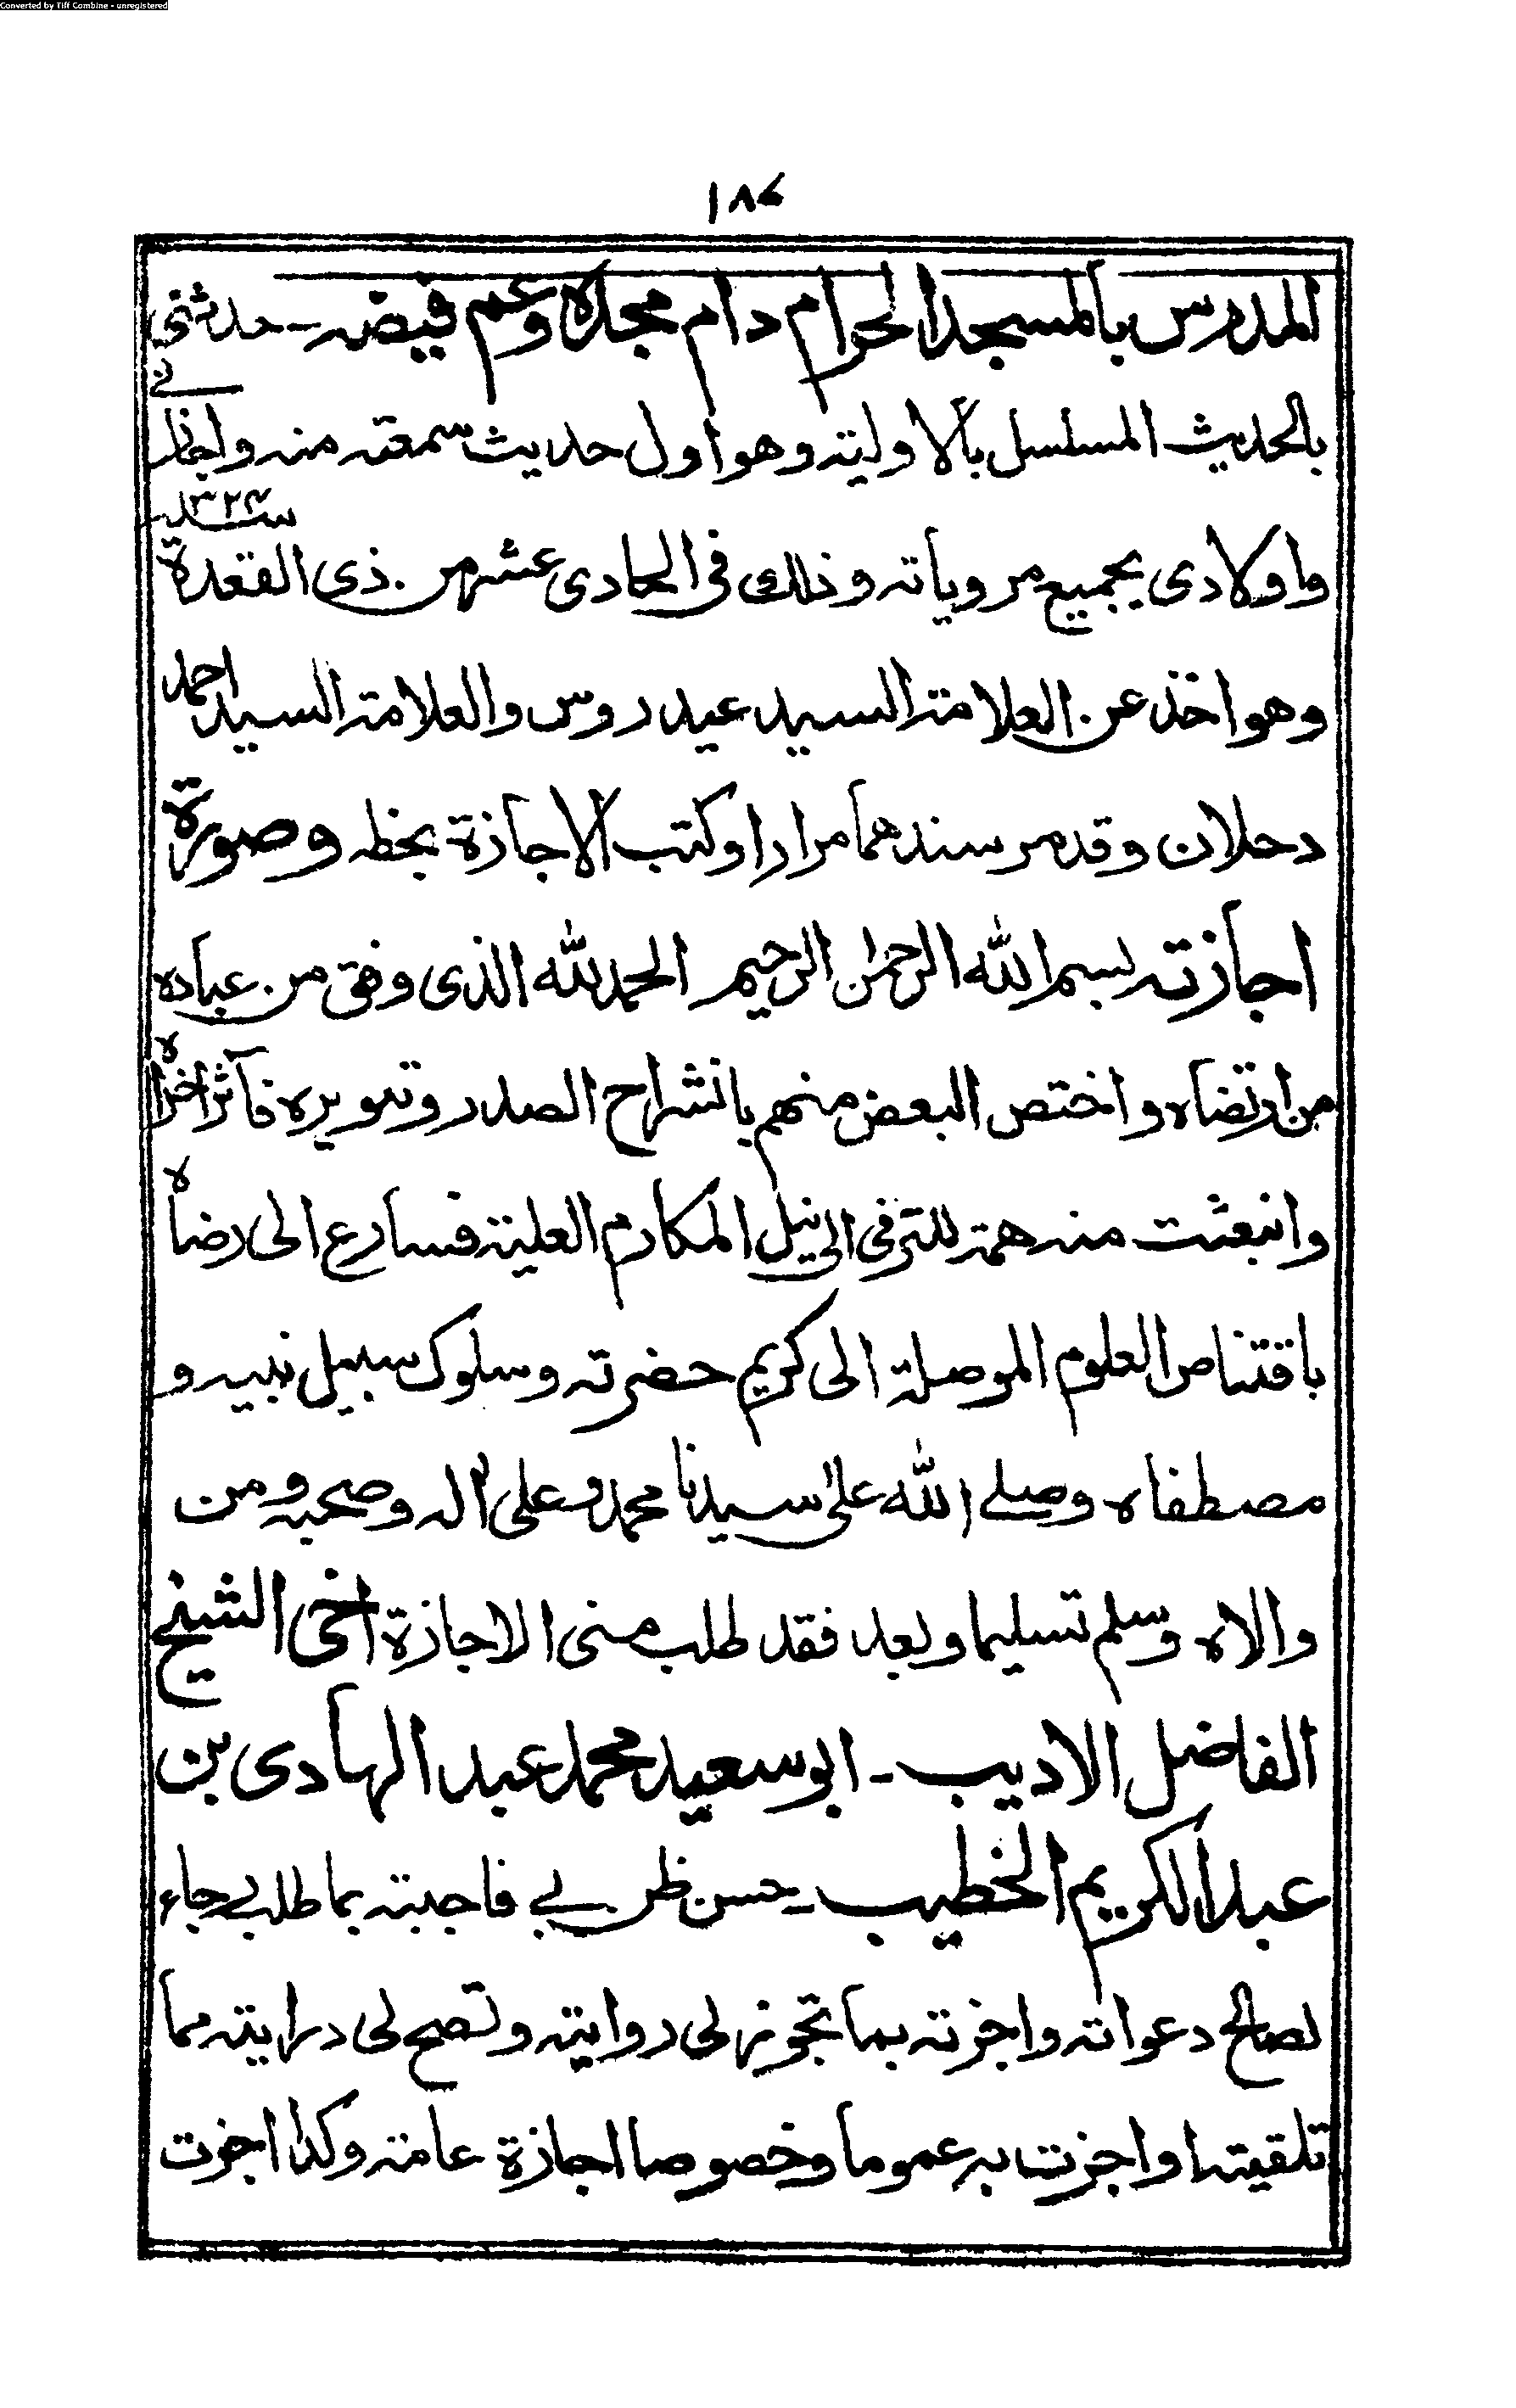 Converted by Tiff Combine - unregistered
المدرس بالمسجد الحرام دام مجده وعم فيضه - حدثني
بالحديث المسلسل بالاولية وهو اول حديث سمعته منه واجازني
واولادي بجميع مروياته وذلك في الحادي عشر من ذي القعدة سنة
وهو اخذ عن العلامة السيد عيدروس والعلامة السيد احمد
دحلان وقد مر سندهما مرارا وكتب الاجازة بخطه وصورة
اجازته بسم الله الرحمن الرحيم الحمد لله الذي وفق من عباده
من ارتضاه واختص البعض منهم بانشراح الصدر وتنويره فآثر اخراه
وانبعثت منه همة للترقي الى نيل المكارم العلية فسارع الى رضاه
باقتناص العلوم الموصلة الى كريم حضرته وسلوك سبيل نبيه و
مصطفاه وصلى الله على سيدنا محمد وعلى اله وصحبه ومن
والاه وسلم تسليما وبعد فقد طلب مني الاجازة اخي الشيخ
الفاضل الاديب - ابو سعيد محمد عبد الهادي بن
عبد الكريم الخطيب - حسن ظن بي فاجبته بما طلب رجاء
لصالح دعواته واجزته بما تجوز لي روايته وتصح لي درايته مما
تلقيته او اجزت به عموما وخصوصا اجازة عامة وكذا اجزت